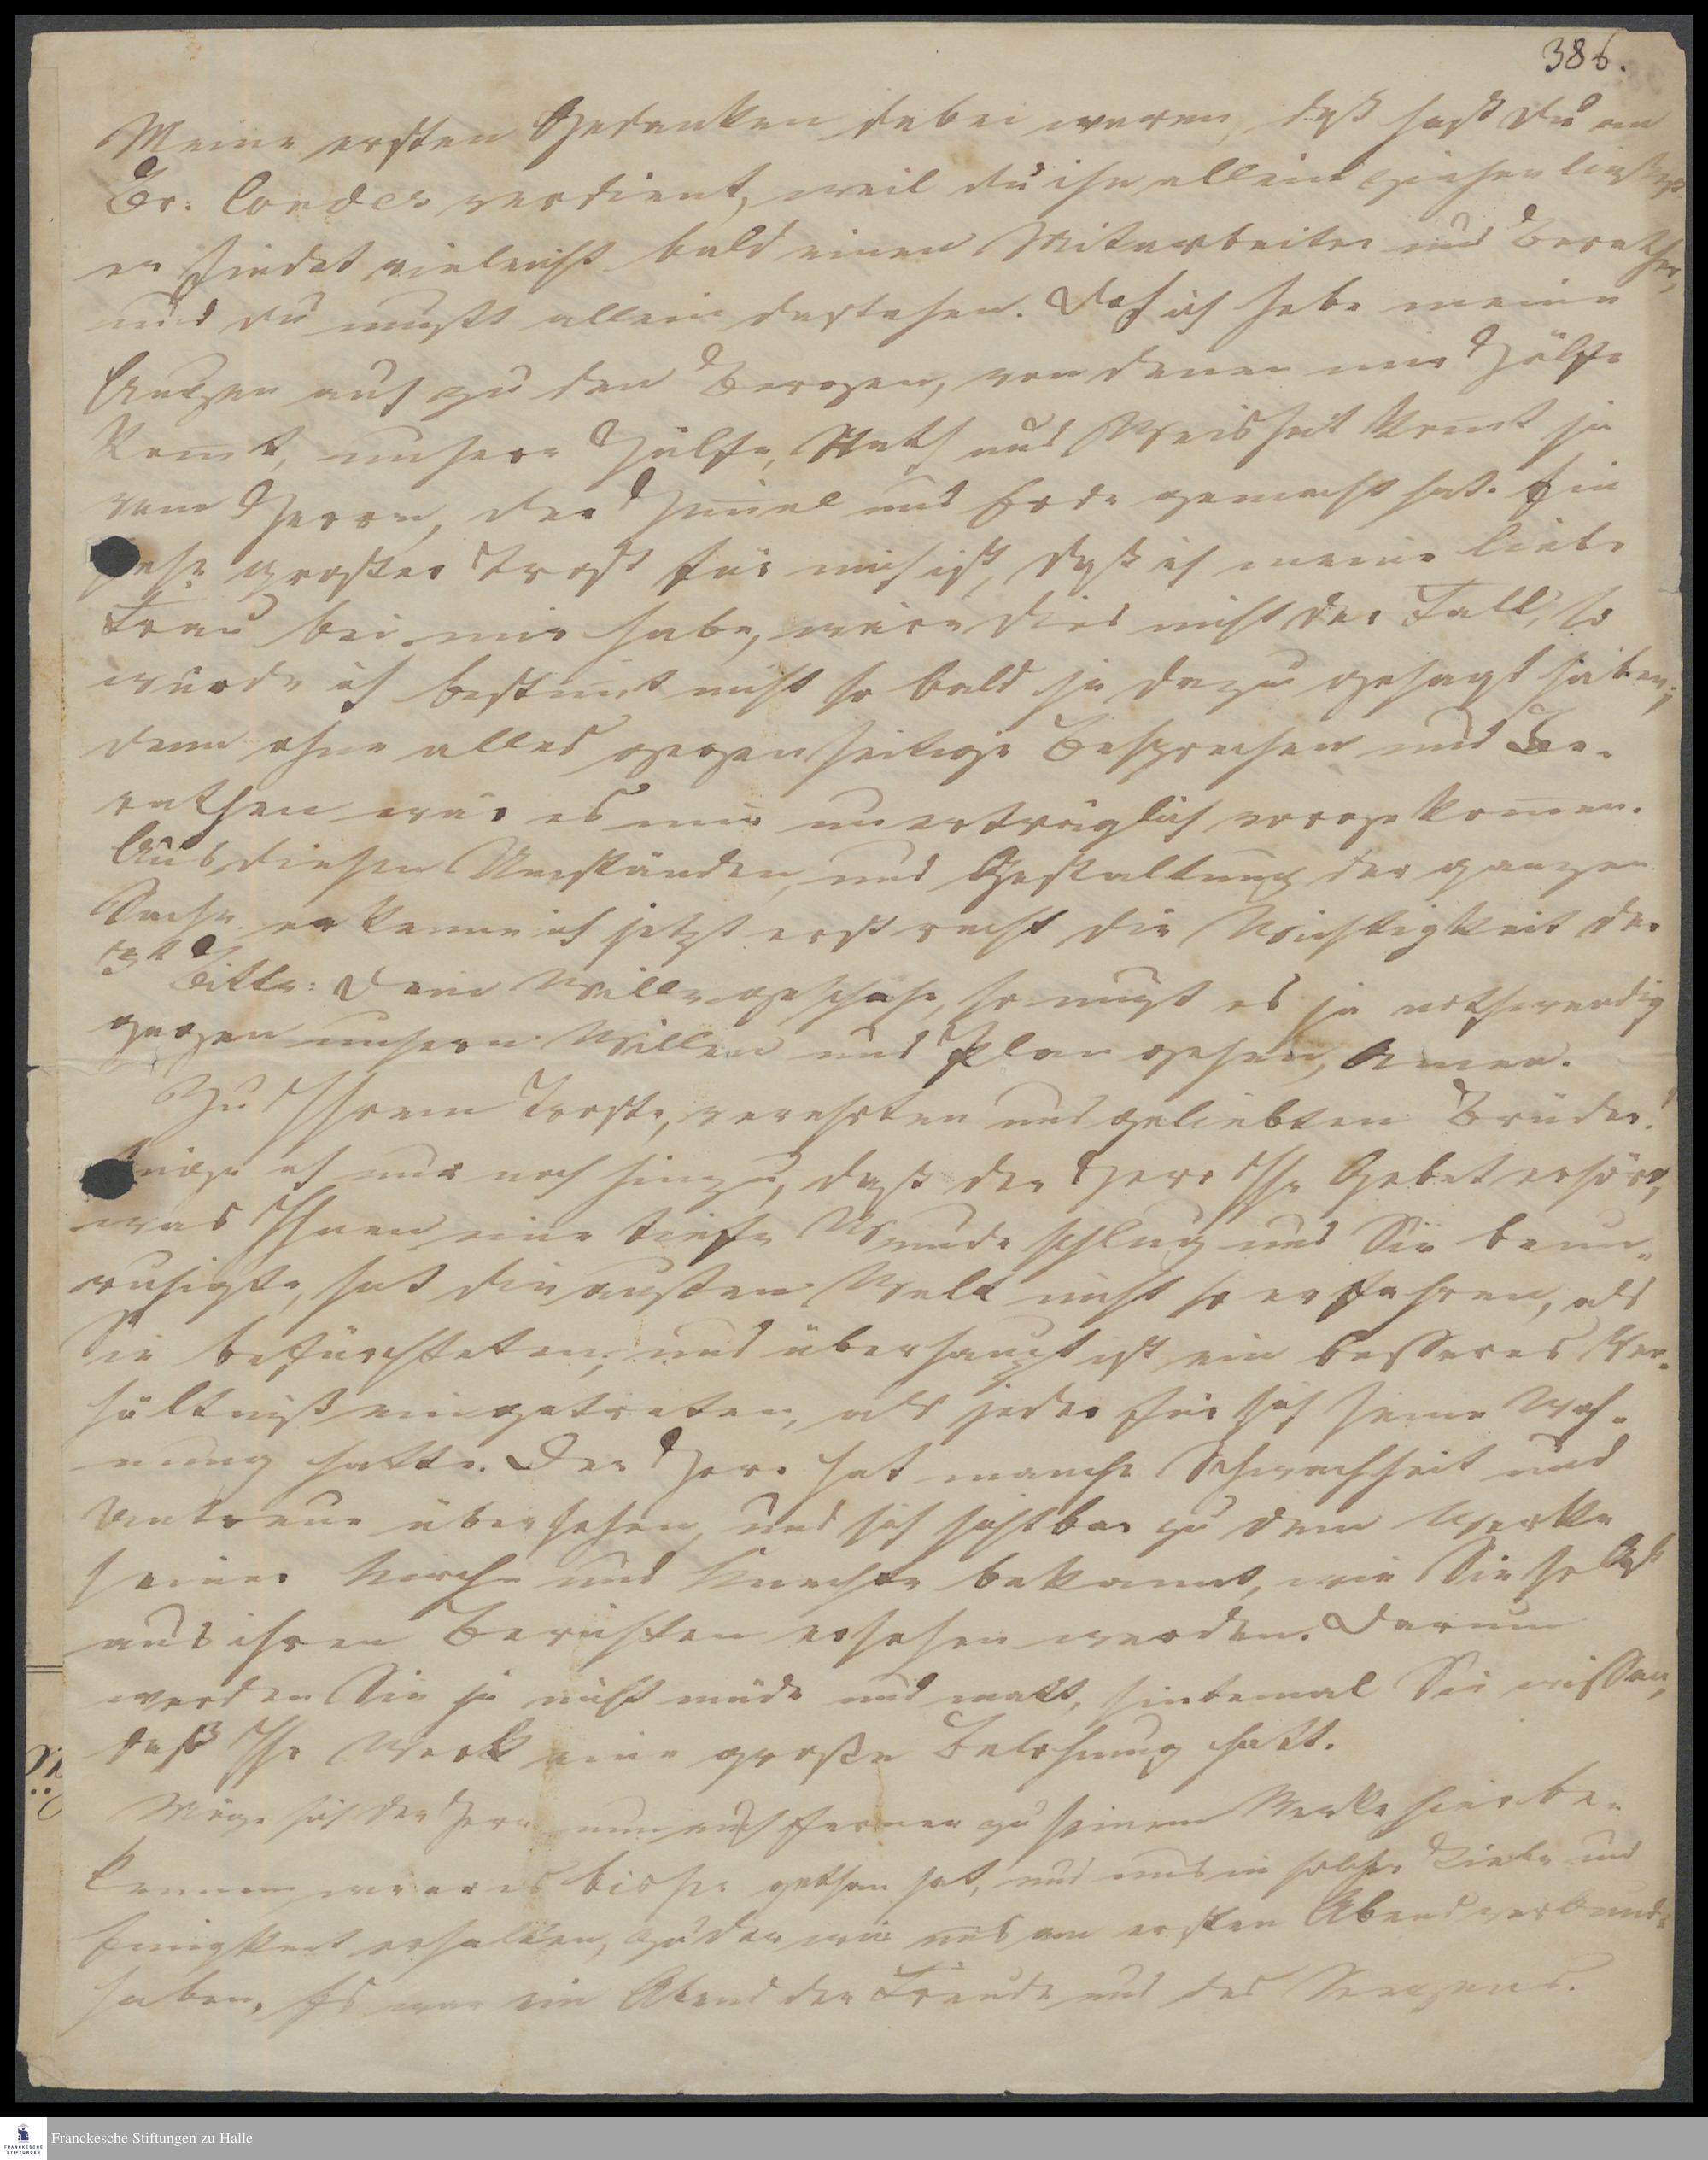 386.
Meine ersten Gedanken dabei waren, daß hast du an
Br. Cordes verdient, weil du ihn allein ziehen ließest
er findet vieleicht bald einen Mitarbeiter und Berather,
und du mußt allein dastehen. Doch ich hebe meine
Augen auf zu den Bergen, von denen mir Hülfe
komt, unsere Hülfe, Rath und Weisheit komt ja
vom Herrn, der Himel und Erde gemacht hat. Ein
sehr großer Trost für mich ist, daß ich meine liebe
Frau bei mir habe, wäre dies nicht der Fall, so
würde ich bestimt nicht so bald ja dazu gesagt haben;
denn ohne alles gegenseitige Besprechen und Be-
rathen wär es mir unerträglich vorgekomen.
Aus diesen Umständen, und Gestaltung der ganzen
Sache erkenne ich jetzt erst recht die Wichtigkeit der
3t Bitte: Dein Wille geschehe, so mußt es ja nothwendig
gegen unsern Willen und Plan gehen, Amen.
Zu Ihrem Troste, verehrten und geliebten Brüder!
füge ich nur noch hinzu, daß der Herr Ihr Gebet erhört,
was Ihnen eine tiefe Wunde schlug und Sie beun-
ruhigte, hat die außen Welt nicht so erfahren, als
Sie befürchteten, und überhaupt ist ein besseres Ver-
hältniß eingetreten, als jeder für sich seine Woh-
nung hatte. Der Herr hat manche Schwachheit und
Untreue übersehen, und sich sichtbar zu dem Werke
seiner Kirche und Knechte bekannt, wie Sie selbst
aus ihren Berichten ersehen werden. Darum
werden Sie ja nicht müde und matt, sintemal Sie wissen,
daß Ihr Werk eine große Belohnung hatt.
Möge sich der Herr nun auch ferner zu seinem Werke hier be-
kennen, wie er es bisher gethan hat, und uns in solcher Liebe und
Einigkeit erhalten, zu der wir uns am ersten Abend verbunde
haben. Es war ein Abend der Freude und des Seegens.
Franckesche Stiftungen zu Halle